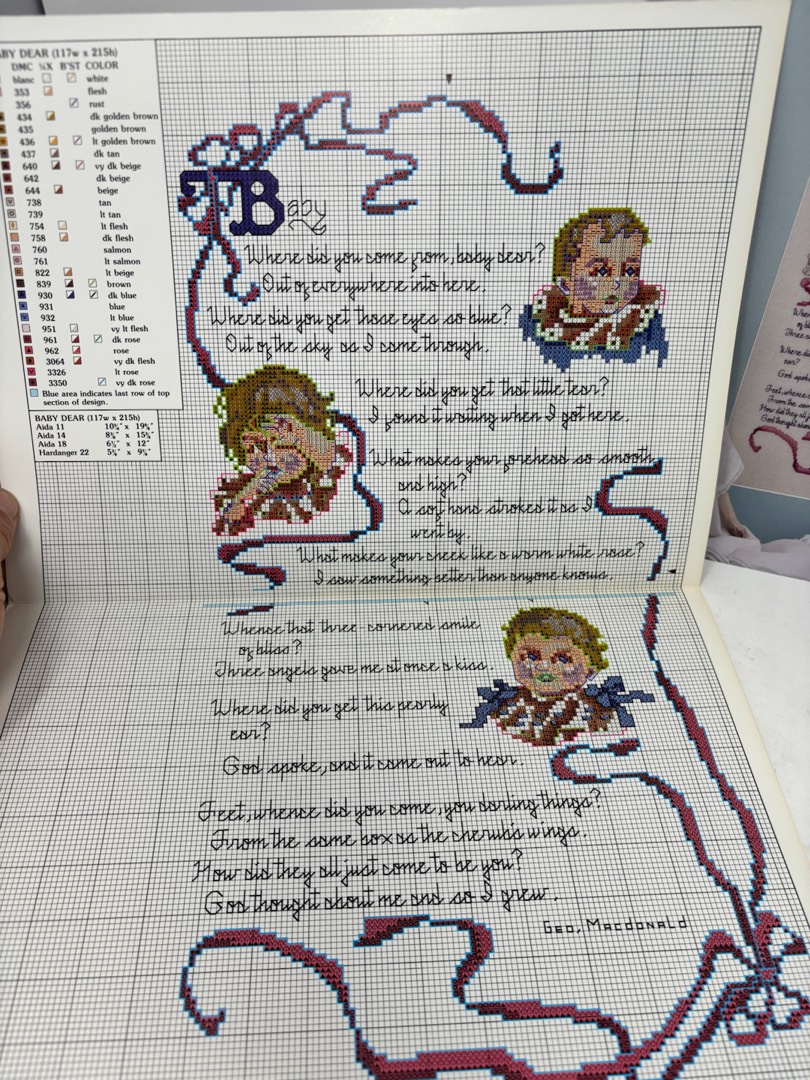 BABY DEAR (117w x 215h)
DMC ¼X B'ST COLOR
blanc white
353 flesh
356 rust
434 dk golden brown
435 golden brown
436 lt golden brown
437 dk tan
640 vy dk beige
642 dk beige
644 beige
738 tan
739 lt tan
754 lt flesh
758 dk flesh
760 salmon
761 lt salmon
822 lt beige
839 brown
930 dk blue
931 blue
932 lt blue
951 vy lt flesh
961 dk rose
962 rose
3064 vy dk flesh
3326 lt rose
3350 vy dk rose
Blue area indicates last row of top
section of design.
BABY DEAR (117w x 215h)
Aida 11 10⅝" x 19⅝"
Aida 14 8⅜" x 15⅜"
Aida 18 6½" x 12"
Hardanger 22 5⅜" x 9¾"
Baby
Where did you come from, baby dear?
Out of everywhere into here.
Where did you get those eyes so blue?
Out of the sky as I came through.
Where did you get that little tear?
I found it waiting when I got here.
What makes your forehead so smooth
and high?
A soft hand stroked it as I
went by.
What makes your cheek like a warm white rose?
I saw something better than anyone knows.
Whence that three-cornered smile
of bliss?
Three angels gave me at once a kiss.
Where did you get this pearly
ear?
God spoke, and it came out to hear.
Feet, whence did you come, you darling things?
From the same box as the cherub's wings.
How did they all just come to be you?
God thought about me and so I grew.
Geo. Macdonald